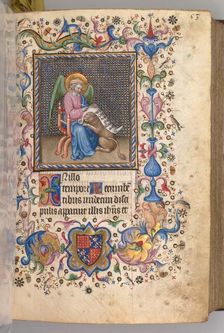 IN illo
tempore Recumbe
tibus undecim disci
pulis apparuit illis ihus et